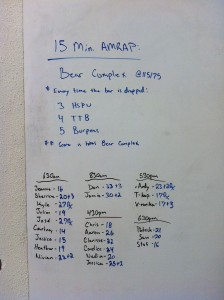 15 Min. AMRAP.
Bear Complex @115/75
* Every time the bar is dropped:
3 HSPU
4 TTB
5 Burpees
** Score is total Bear Complex
530am
Jeanna - 16
Sharron - 20+3
Kyle - 27
Julie - 19
Jose - 27
Courtney - 14
Jessica - 13
Heather - 19
830am
Dan - 23+3
Jamie - 20+2
430pm
Chris - 18
Aaron - 26
Clarissa - 22
Candice - 24
Nadia - 20
Jessica - 25+2
530pm
Andy - 23+2
T-bag - 22
Veronika - 17+3
630pm
Patrick - 20
Sam - 20
Stus - 16